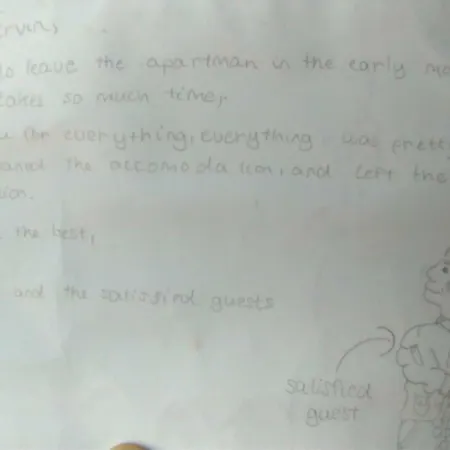 to leave the apartman in the early mo
takes so much time,
everything, everything was prett
the accomodation, and left the
the best,
and the satisfied guests
satisfied
guest